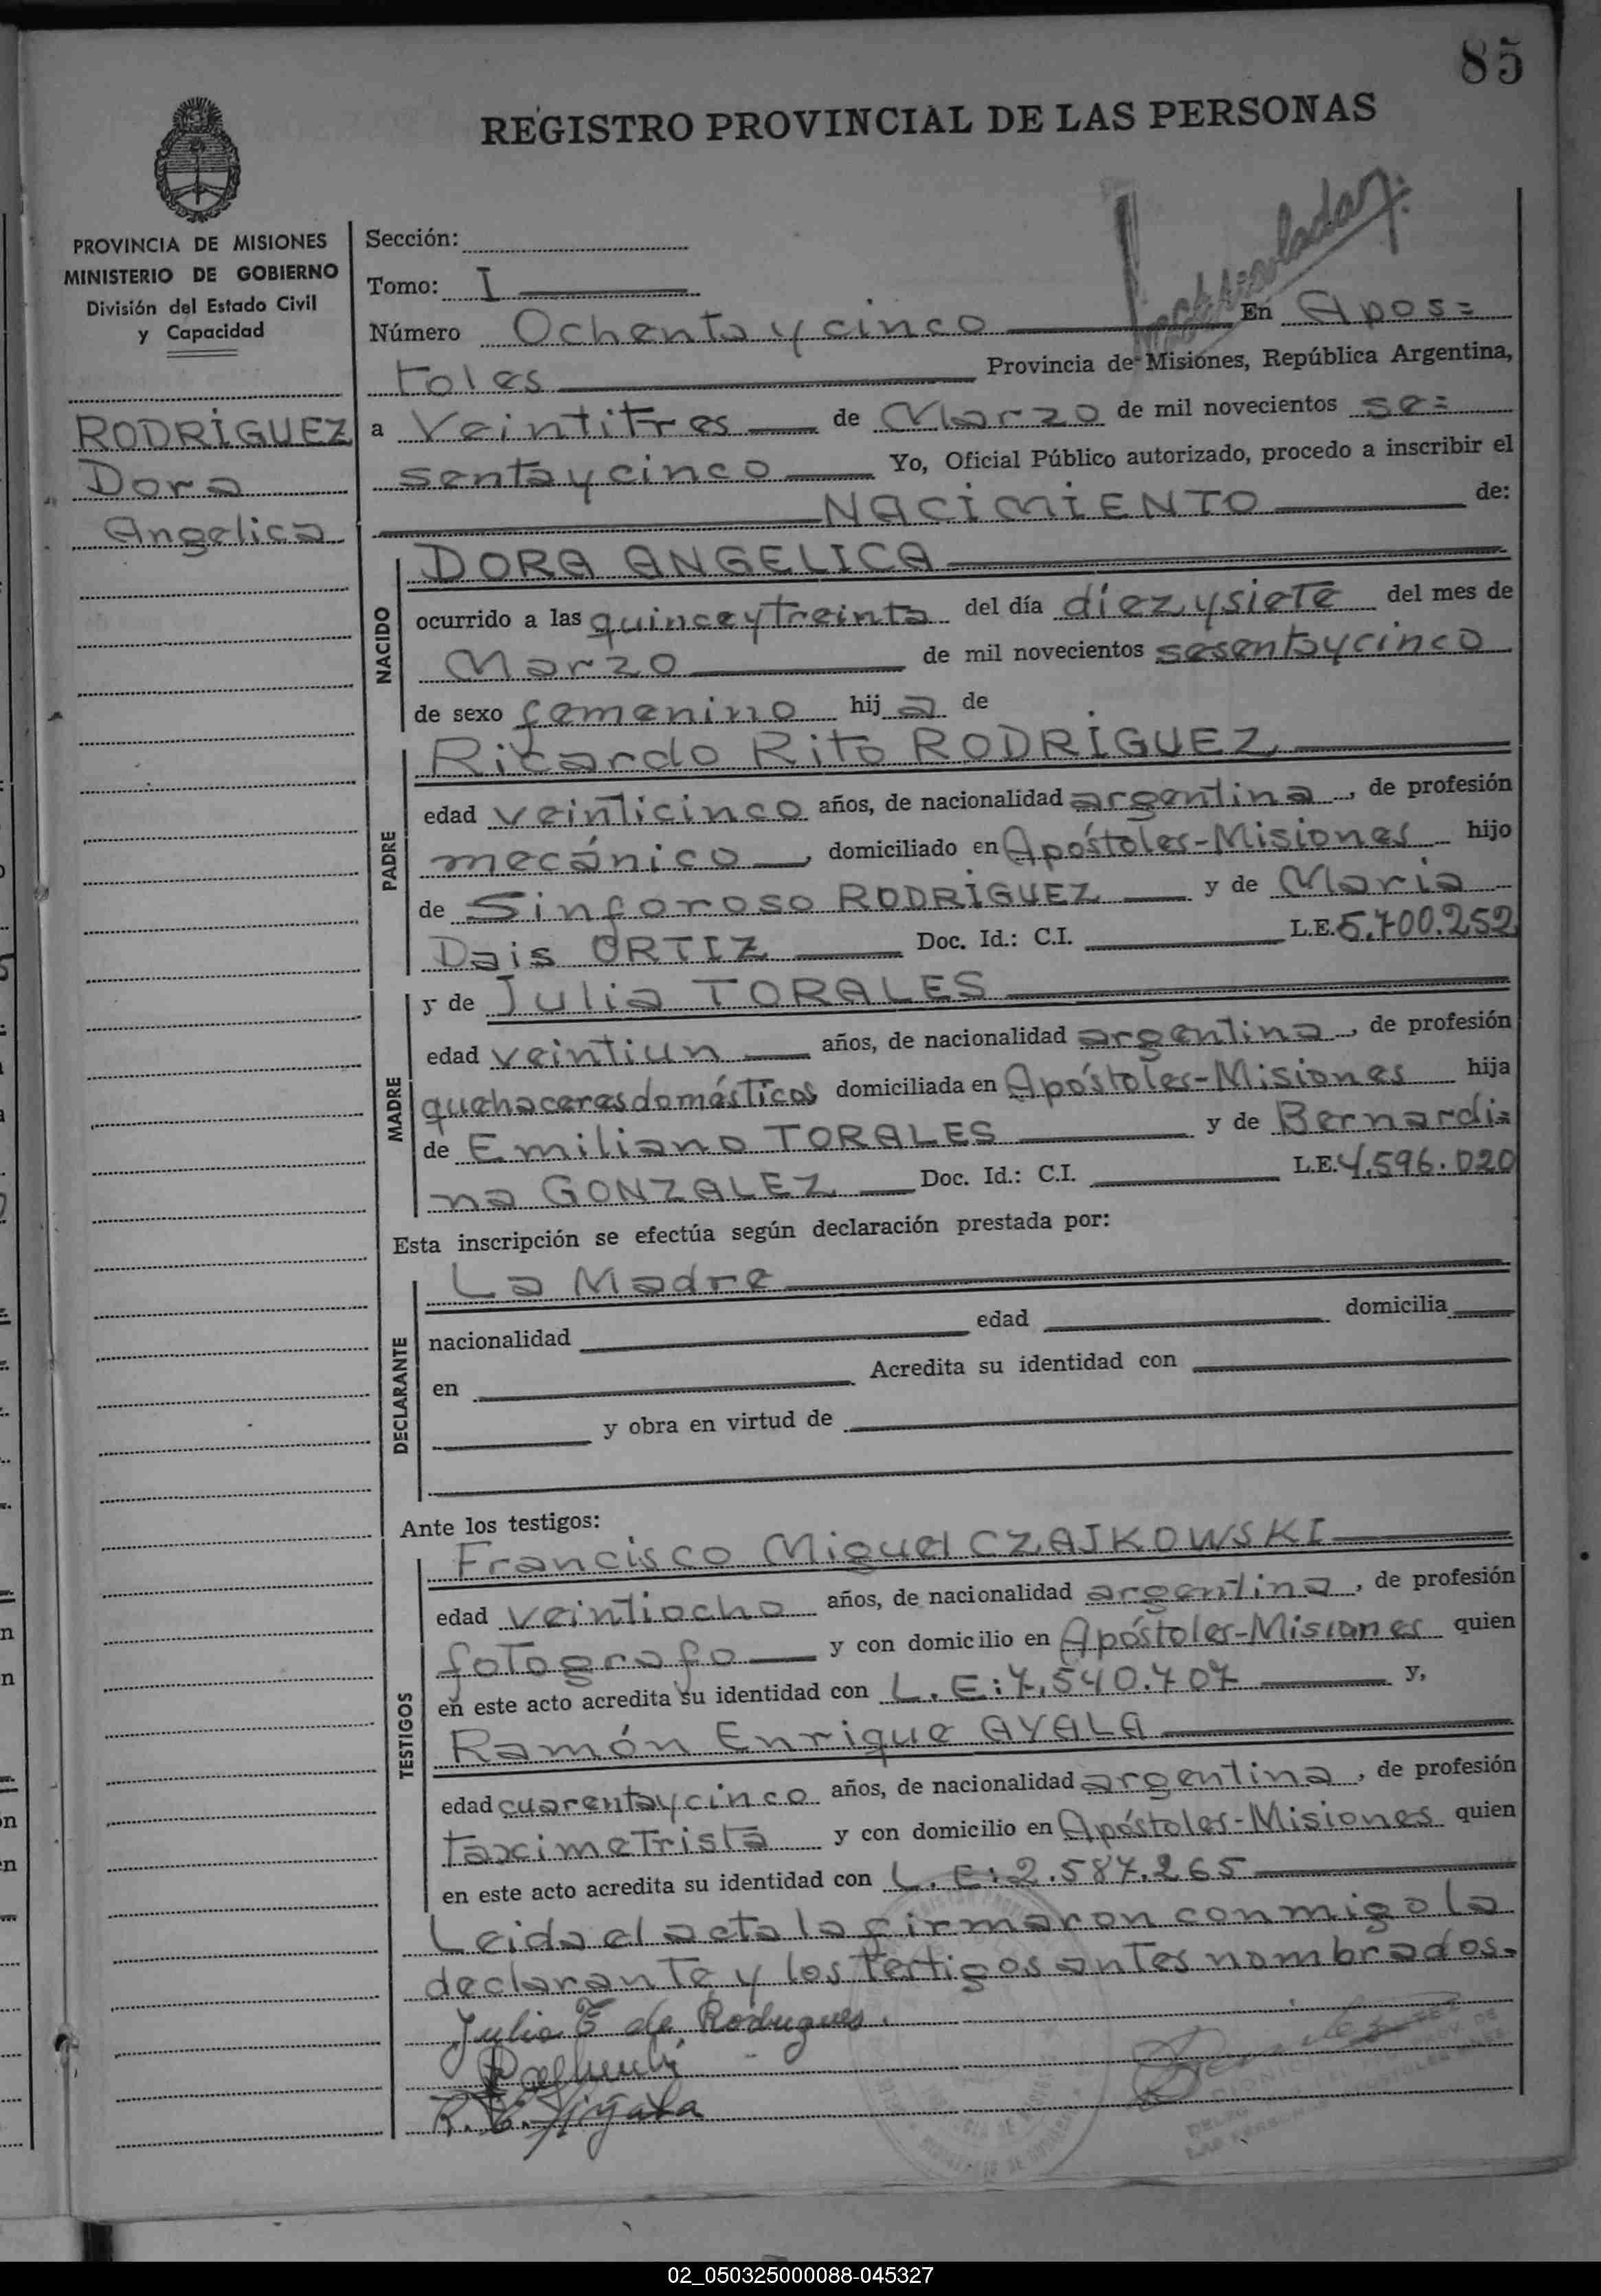 85
REGISTRO PROVINCIAL DE LAS PERSONAS
PROVINCIA DE MISIONES
MINISTERIO DE GOBIERNO
División del Estado Civil
y Capacidad
RODRÍGUEZ
Dora
Angelica
Sección:
Tomo: I
Número Ochenta y cinco En Apos=
toles Provincia de Misiones, República Argentina,
a Veintitres de Marzo de mil novecientos se=
senta y cinco Yo, Oficial Público autorizado, procedo a inscribir el
NACIMIENTO de:
NACIDO
DORA ANGELICA
ocurrido a las quince y treinta del día diez y siete del mes de
Marzo de mil novecientos sesenta y cinco
de sexo femenino hija de
PADRE
Ricardo Rito RODRÍGUEZ
edad veinticinco años, de nacionalidad argentina, de profesión
mecánico, domiciliado en Apóstoles-Misiones hijo
de Sinforoso RODRÍGUEZ y de Maria
Dais ORTIZ Doc. Id.: C.I. L.E. 5.700.252
MADRE
y de Julia TORALES
edad veintiun años, de nacionalidad argentina, de profesión
quehaceres domésticos domiciliada en Apóstoles-Misiones hija
de Emiliano TORALES y de Bernardi=
na GONZALEZ Doc. Id.: C.I. L.E. 4.596.020
Esta inscripción se efectúa según declaración prestada por:
DECLARANTE
La Madre
nacionalidad edad domicilia
en Acredita su identidad con
y obra en virtud de
Ante los testigos:
TESTIGOS
Francisco Miguel CZAJKOWSKI
edad veintiocho años, de nacionalidad argentina, de profesión
fotografo y con domicilio en Apóstoles-Misiones quien
en este acto acredita su identidad con L.E: 7.540.707 y,
Ramón Enrique AYALA
edad cuarenta y cinco años, de nacionalidad argentina, de profesión
taximetrista y con domicilio en Apóstoles-Misiones quien
en este acto acredita su identidad con L.E: 2.587.265
Leida el acta la firmaron conmigo la
declarante y los testigos antes nombrados.
Julia T de Rodrigues.
02_050325000088-045327